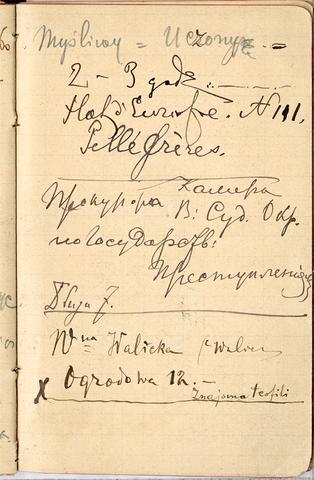 Myśliwy = Uczony =
2 – 3 godz.
Hot. d'Europe. N 111.
Pellé frères.
Камера
Прокурора В. Суд. Окр.
по Государств:
Преступленіи
Długa 7.
W na Walicka
x Ogrodowa 12. –
Znajoma Teofili